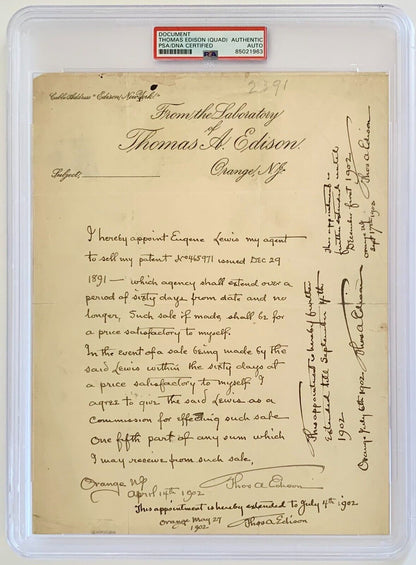 DOCUMENT
THOMAS EDISON (QUAD) AUTHENTIC
PSA/DNA CERTIFIED AUTO
85021963
2391
Cable Address "Edison, New York."
From the Laboratory
of
Thomas A. Edison.
Orange, N.J.
Subject
I hereby appoint Eugene Lewis my agent
to sell my patent No 465971 issued Dec 29
1891 — which agency shall extend over a
period of sixty days from date and no
longer, Such sale if made, shall be for
a price satisfactory to myself.
In the event of a sale being made by the
said Lewis within the sixty days at
a price satisfactory to myself I
agree to give the said Lewis as a
Commission for effecting such sale
one fifth part of any sum which
I may receive from such sale,
Orange NJ
April 14th 1902
Thos A Edison
This appointment is hereby extended to July 4th 1902
Orange May 27
1902
Thos A Edison
This appointment is hereby further
Extended till September 4th
1902
Orange July 6th 1902
Thos A Edison
This appointment is
further extended until
December first 1902
Orange NJ
Sept 17th 1902
Thos A Edison